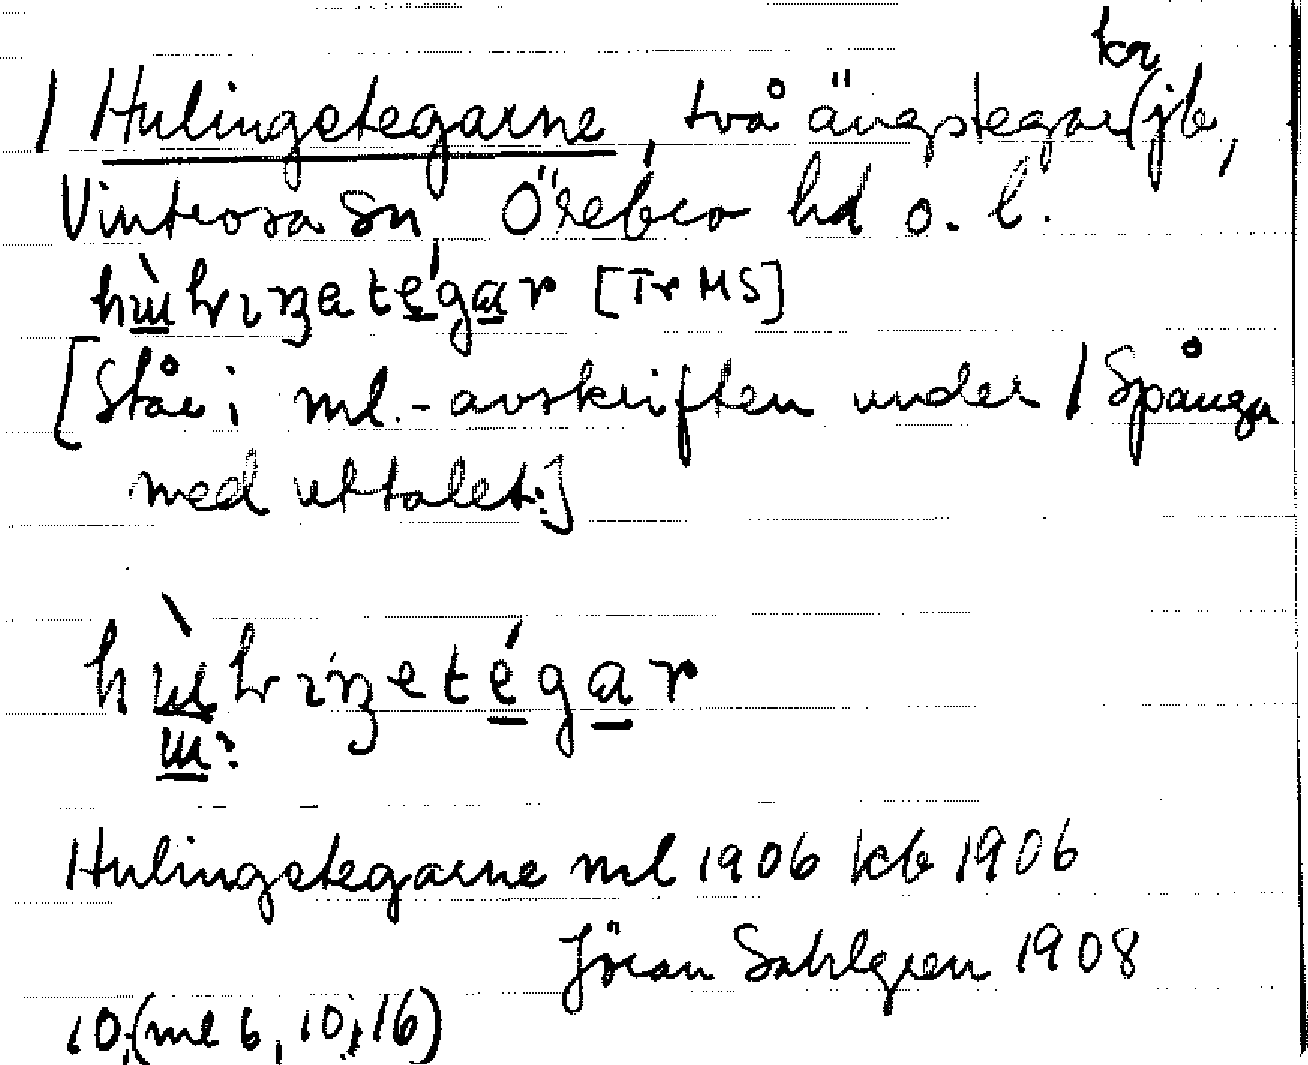 kr
/ Hulingstegarne, två ängstegar (jb,
Vintrosa sn Örebro hd ö. l.
[Tr MS]
[Står i ml.-avskriften under / Spånga
med uttalet:]
Hulingstegarne ml 1906 kb 1906
Jöran Sahlgren 1908
10, (ml 6, 10, 16)